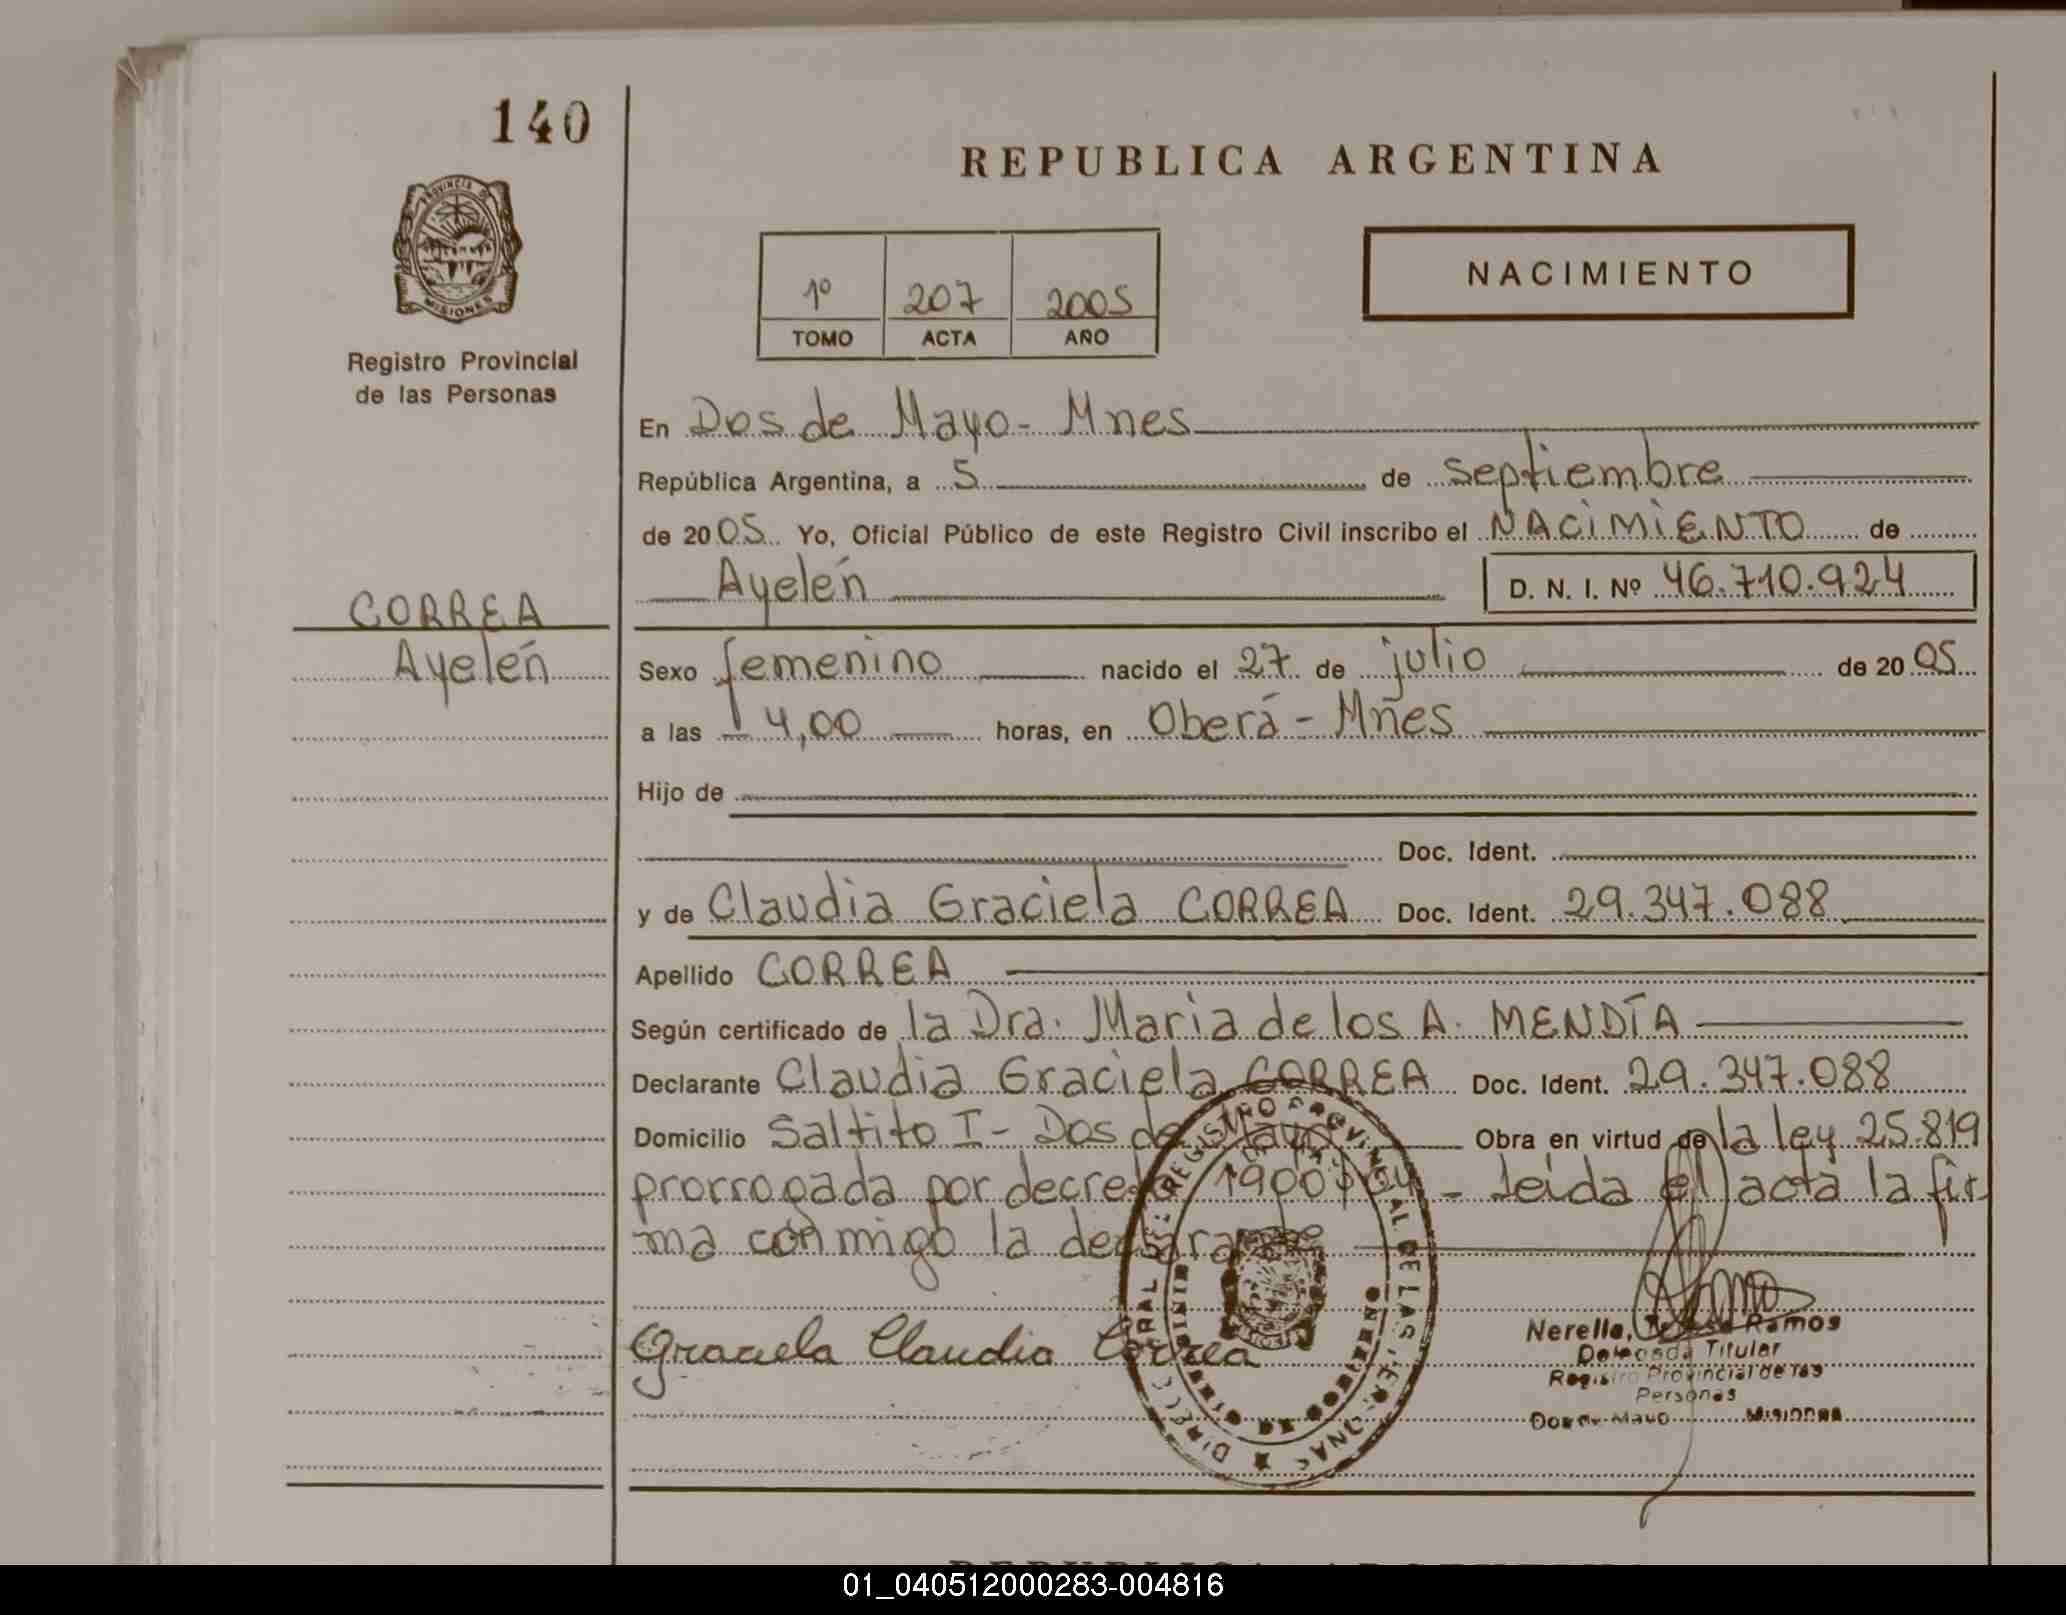 140
REPUBLICA ARGENTINA
PROVINCIA DE
MISIONES
1º 207 2005
TOMO ACTA AÑO
NACIMIENTO
Registro Provincial
de las Personas
En Dos de Mayo - Mnes
República Argentina, a 5 de septiembre
de 2005 Yo, Oficial Público de este Registro Civil inscribo el NACIMIENTO de
Ayelén D. N. I. Nº 46.710.924
CORREA
Ayelén
Sexo femenino nacido el 27 de julio de 2005
a las 4,00 horas, en Oberá - Mñes
Hijo de
Doc. Ident.
y de Claudia Graciela CORREA Doc. Ident. 29.347.088
Apellido CORREA
Según certificado de la Dra. Maria de los A. MENDÍA
Declarante Claudia Graciela CORREA Doc. Ident. 29.347.088
Domicilio Saltito I - Dos de Mayo Obra en virtud de la ley 25.819
prorrogada por decreto 1900/04 - Leída el acta la fir
ma conmigo la declarante
Graciela Claudia Correa
REGISTRO PROVINCIAL DE LAS PERSONAS
Nerella, Ramos
Delegada Titular
Registro Provincial de las
Personas
Dos de Mayo Misiones
REPUBLICA ARGENTINA
01_040512000283-004816